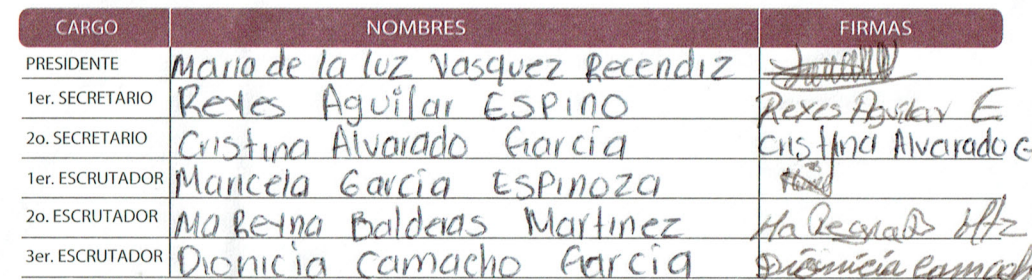 CARGO NOMBRES FIRMAS
PRESIDENTE Maria de la luz Vasquez Recendiz
1er. SECRETARIO Reyes Aguilar ESPINO Reyes Aguilar E
2o. SECRETARIO Cristina Alvarado Garcia Cristina Alvarado G
1er. ESCRUTADOR Maricela Garcia ESPINOZA
2o. ESCRUTADOR Ma Reyna Balderas Martinez Ma Reyna B Mtz
3er. ESCRUTADOR Dionicia Camacho Garcia Dionicia Camacho